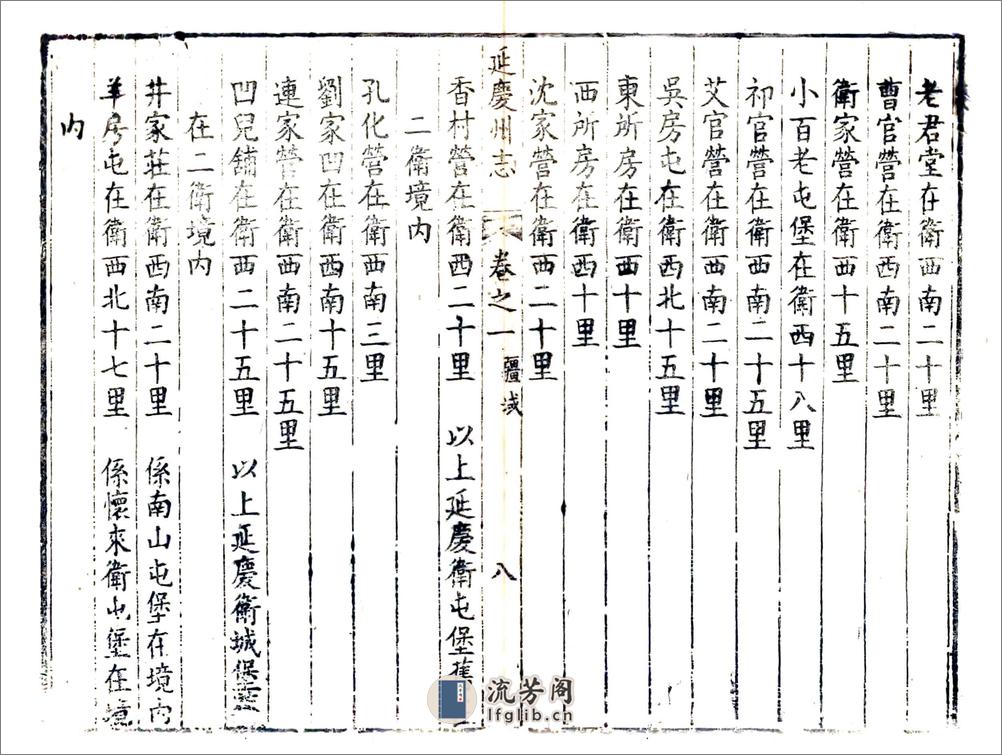 老君堂在衛西南二十里
曹官營在衛西南二十里
衛家營在衛西十五里
小百老屯堡在衛西十八里
祁官營在衛西南二十五里
艾官營在衛西南二十里
吳房屯在衛西北十五里
東所房在衛西十里
西所房在衛西十里
沈家營在衛西二十里
延慶州志 卷之一 疆域 八
香村營在衛西二十里 以上延慶衛屯堡舊
二衛境内
孔化營在衛西南三里
劉家凹在衛西南十五里
連家營在衛西南二十五里
凹兒舖在衛西二十五里 以上延慶衛城堡
在二衛境内
井家莊在衛西南二十里 係南山屯堡在境内
羊房屯在衛西北十七里 係懷來衛屯堡在境
内
流芳阁
lfglib.cn